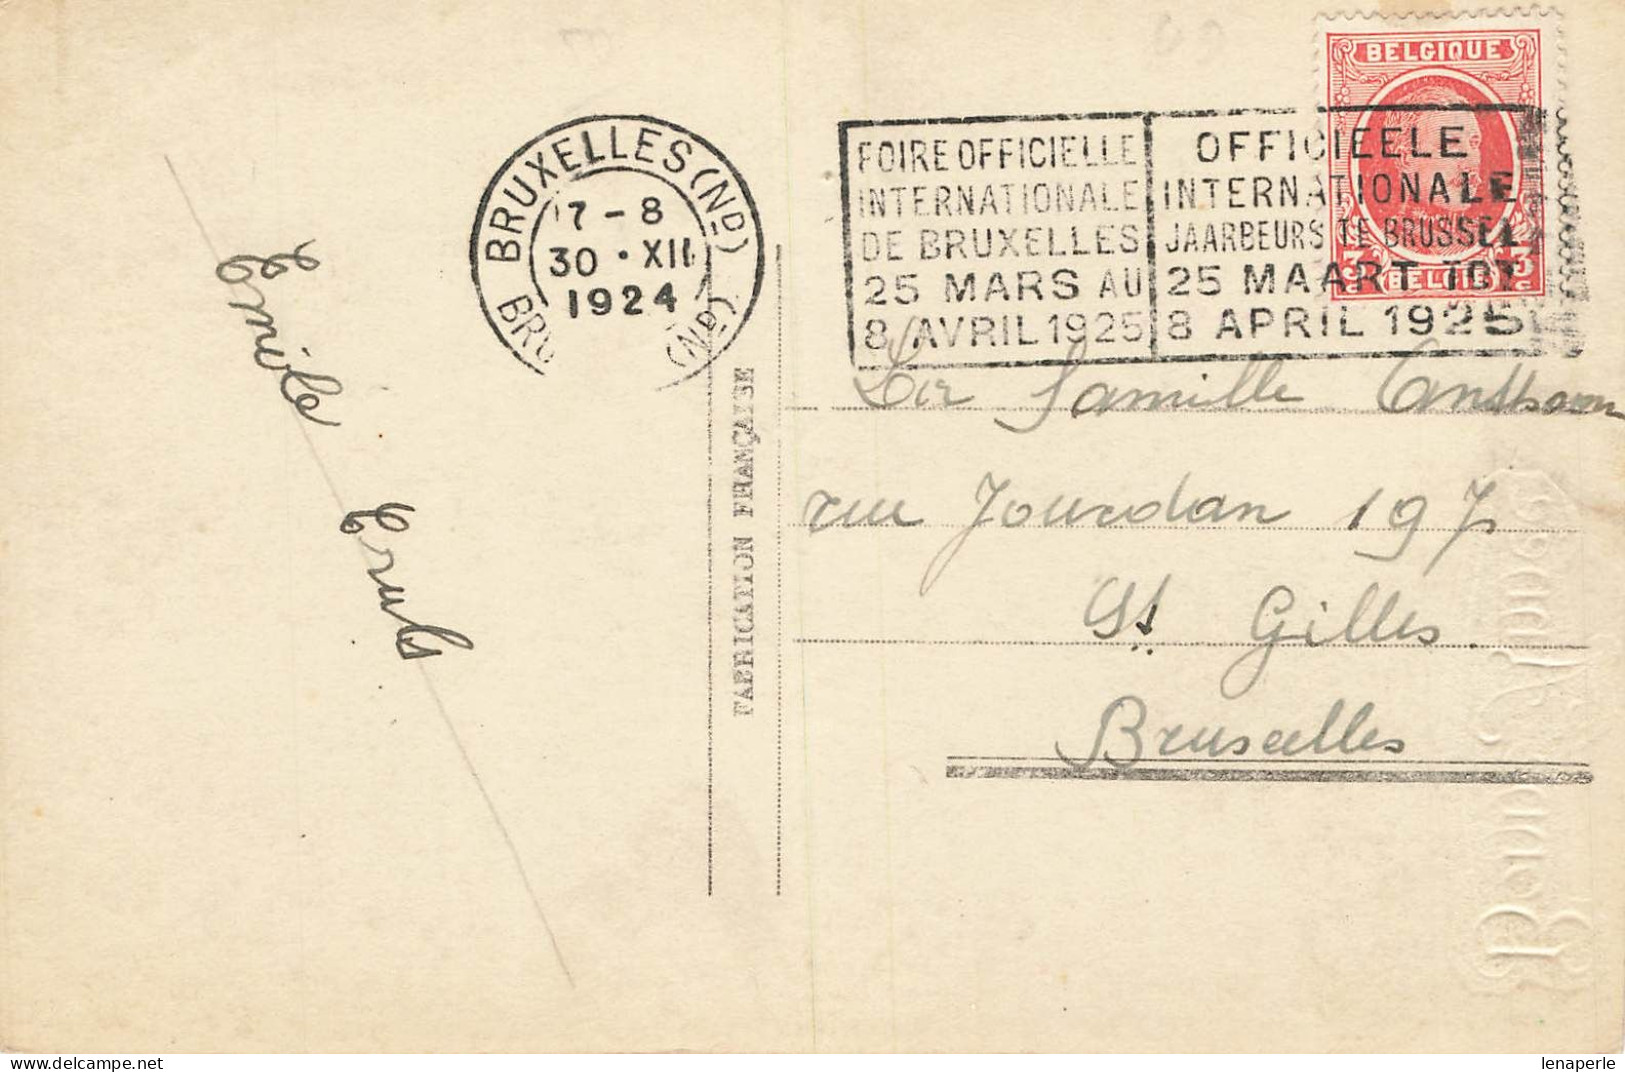 BELGIQUE
BRUXELLES (ND)
7-8
30 · XII
1924
BRU (ND)
FOIRE OFFICIELLE
INTERNATIONALE
DE BRUXELLES
25 MARS AU
8 AVRIL 1925
OFFICIEELE
INTERNATIONALE
JAARBEURS TE BRUSSEL
25 MAART TOT
8 APRIL 1925
3c BELGIE 3c
Emile
FABRICATION FRANÇAISE
famille
rue Jourdan 197
St Gilles
Bruxelles
Bonne Année
lenaperle